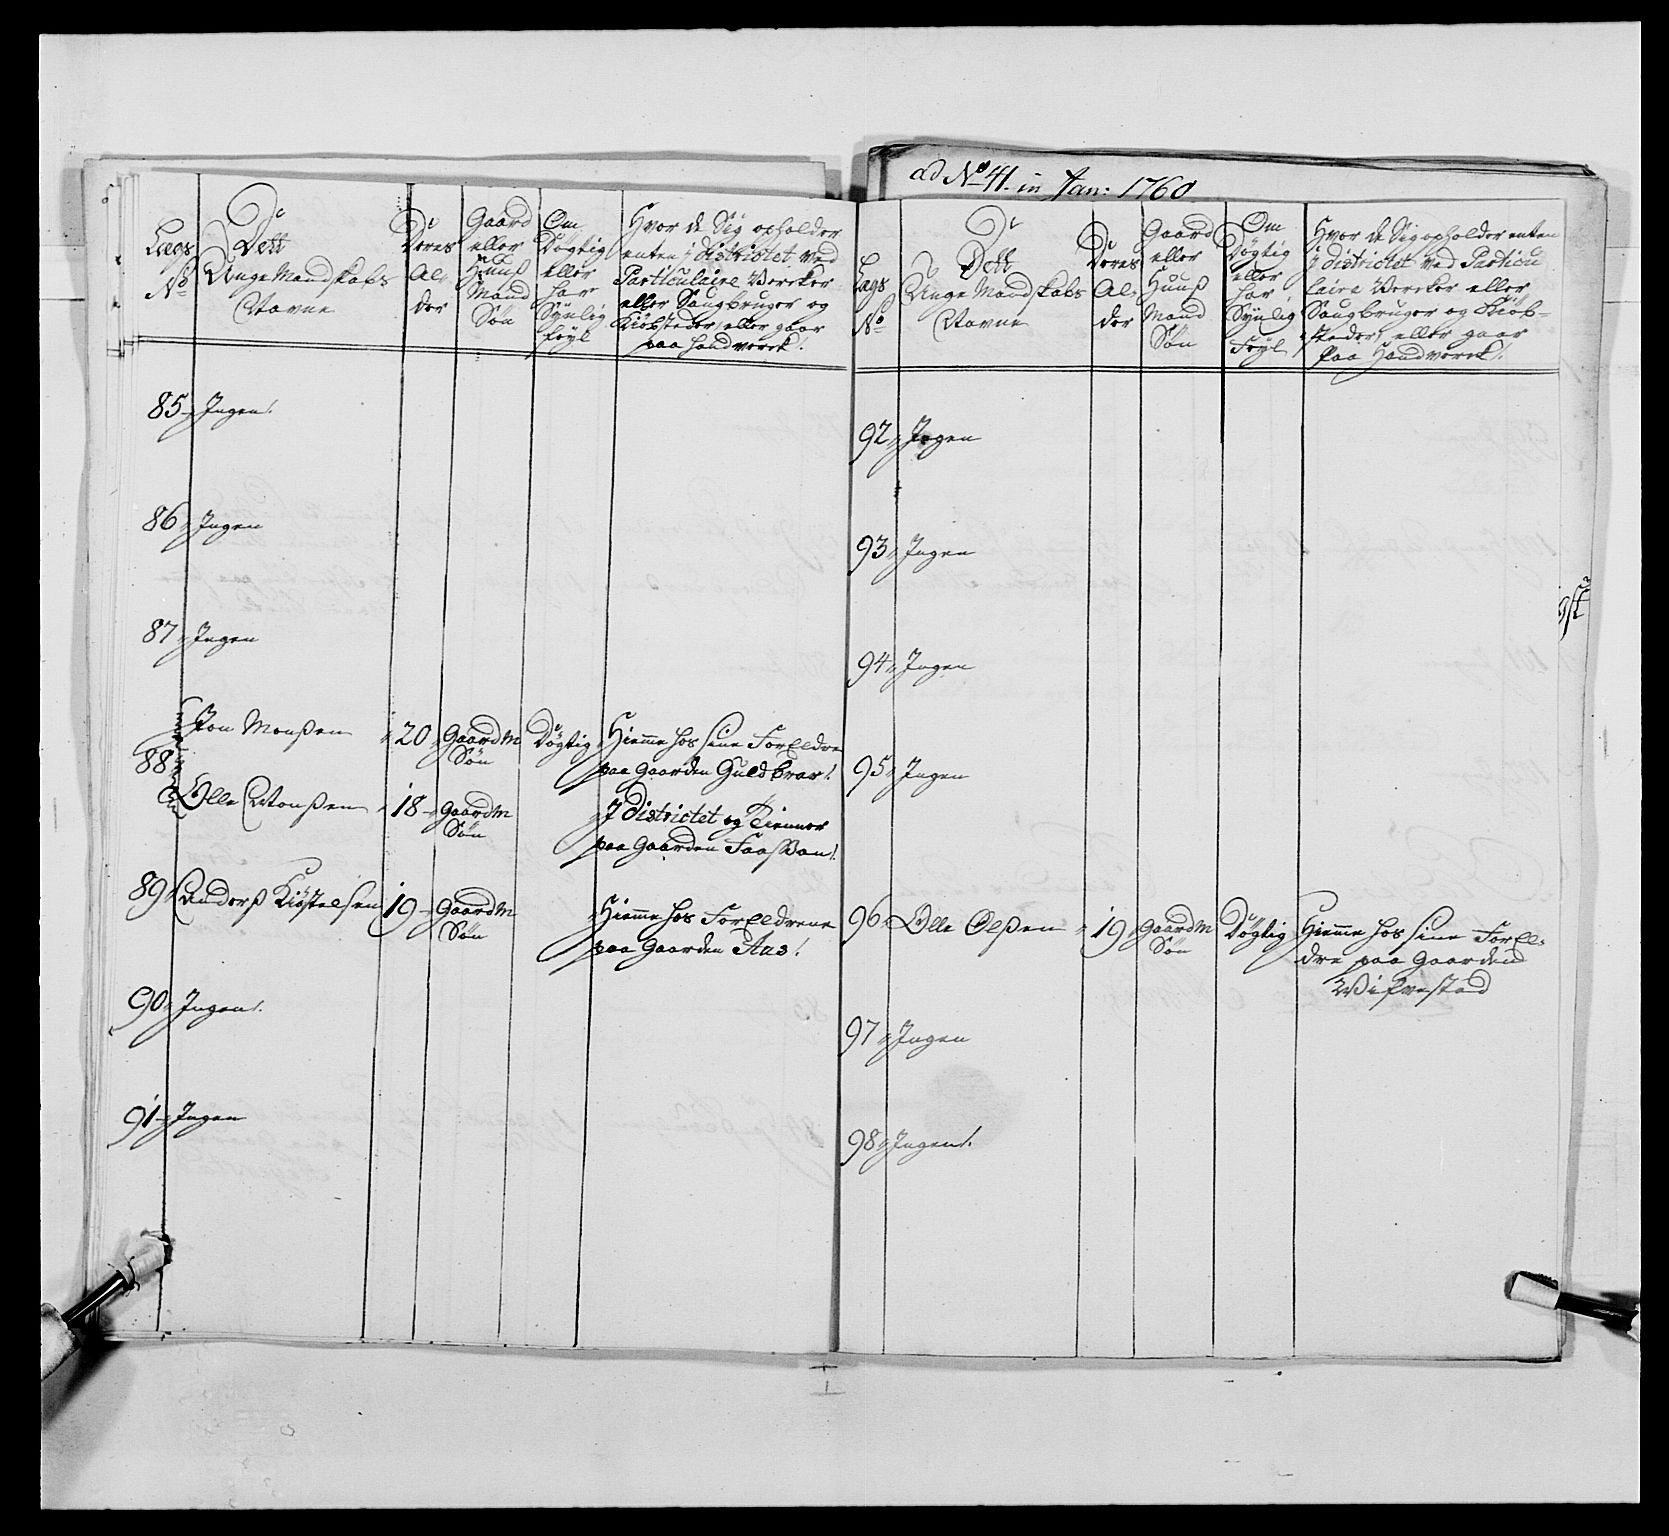 Lægs
No
Dett
Unge Mandskabs
Navne
Deres
Al-
der
Gaard
eller
Huuß
Mand
Søn
Om
Døgtig
eller
har
Synlig
feyl
Hvor de Sig opholder
enten i Districtet ved
Particulaire Vercker
eller Saugbruger og
Kiøbsteder, eller gaar
paa handverck.
85 Ingen
86 Ingen
87 Ingen
88
Jon Monßen 20 Gaard M Søn Døgtig Hiemme hos sine Forældre
paa Gaarden Guldbrar
Olle Monßen 18 Gaard M Søn I Districtet og Tienner
paa Gaarden
89 Anderß Kiøstelsen 19 Gaard M Søn Hiemme hos Forældrene
paa Gaarden Aas
90 Ingen
91 Ingen
ad No 41. in Jan: 1760
Lægs
No
Dett
Unge Mandskabs
Navne
Deres
Al-
der
Gaard
eller
Huuß
Mand
Søn
Om
Døgtig
eller
har
Synlig
Feyl
Hvor de Sig opholder enten
I Districtet ved Particu
laire Vercker eller
Saugbruger og Kiöb-
steder, eller gaar
Paa Handverck
92 Ingen
93 Ingen
94 Ingen
95 Ingen
96 Olle Olßen 19 Gaard M Søn Døgtig Hiemme hos sine Foræl-
dre paa Gaarden
97 Ingen
98 Ingen